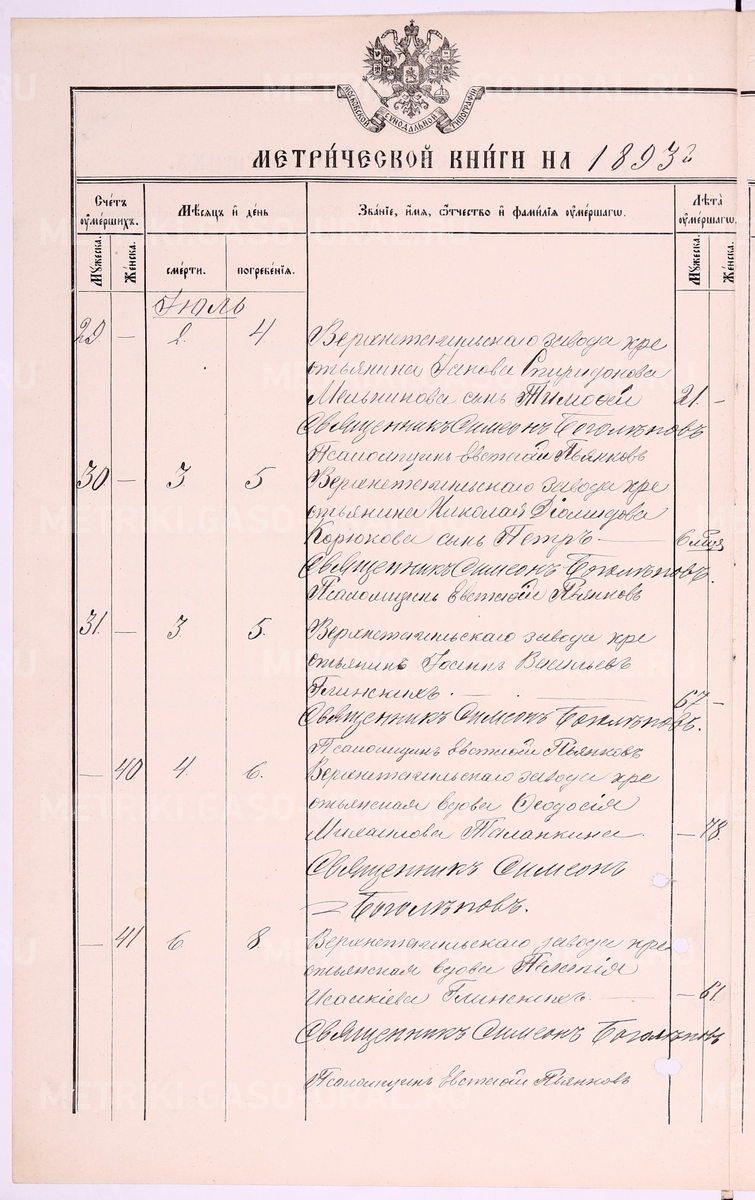 МОСКОВСКОЙ СѴНОДАЛЬНОЙ ТИПОГРАФІИ
МЕТРИ́ЧЕСКОЙ КНИ́ГИ НА 1893 г
Сче́тъ оу҆ме́ршихъ. Мѣ́сяцъ и҆ де́нь Зва́ніе, и҆́мя, ѻ҆́тчество и҆ фами́лія оу҆ме́ршагѡ. Лѣ́та оу҆ме́ршагѡ.
Мꙋ́жеска. Же́нска. сме́рти. погребе́нія. Мꙋ́жеска. Же́нска.
Іюль
29 — 2. 4. Верхнетагильскаго завода кре
стьянина Іакова Спиридонова
Мельникова сынъ Тимоѳей 21. —
Священникъ Симеонъ Боголѣповъ
Псаломщикъ Евстафій Пьянковъ
30 — 3. 5 Верхнетагильскаго завода кре
стьянина Николай Діомидова
Корюкова сынъ Петръ — 6 мѣся
Священникъ Симеонъ Боголѣповъ.
Псаломщикъ Евстафій Пьянковъ
31. — 3. 5. Верхнетагильскаго завода кре
стьянинъ Іоаннъ Васильевъ
Глинскихъ. — 67 —
Священникъ Симеонъ Боголѣповъ.
Псаломщикъ Евстафій Пьянковъ
— 40 4. 6. Верхнетагильскаго завода кре
стьянская вдова Ѳеодосія
Михаилова Талапкина — 78.
Священникъ Симеонъ
Боголѣповъ.
— 41 6. 8. Верхнетагильскаго завода кре
стьянская вдова
Исаакіева Глинскихъ — — 61.
Священникъ Симеонъ Боголѣповъ
Псаломщикъ Евстафій Пьянковъ